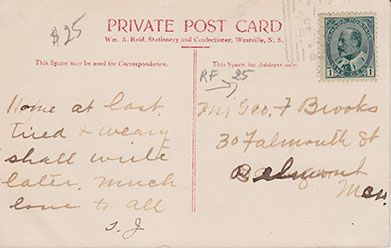 $25
PRIVATE POST CARD
Wm. A. Reid, Stationery and Confectioner, Westville, N. S.
This Space may be used for Correspondence.
This Space for Address only.
RF 25
Home at last
tired & weary
shall write
later. Much
love to all
S. J
Mr Geo. F Brooks
30 Falmouth St
Belmont
Mass.
CANADA POSTAGE
1 1